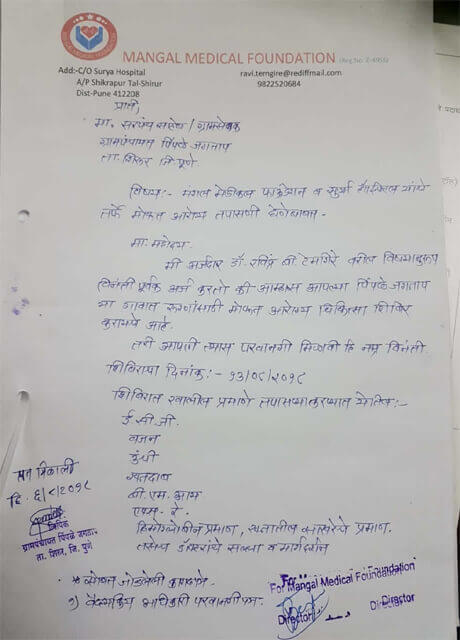 MANGAL MEDICAL FOUNDATION (Reg.No. Z-4955)
Add:-C/O Surya Hospital
ravi.temgire@rediffmail.com
A/P Shikrapur Tal-Shirur
9822520684
Dist-Pune 412208
प्रति,
मा. सरपंच साहेब / ग्रामसेवक
ग्रामपंचायत पिंपळे जगताप
ता. शिरूर जि. पुणे
विषय:- मंगल मेडीकल फाऊंडेशन व सुर्या हॉस्पिटल यांचे
तर्फे मोफत आरोग्य तपासणी होणेबाबत -
मा. महोदय
मी अर्जदार डॉ. रविंद्र बी टेमगिरे वरील विषयानुरूप
विनंती पूर्वक अर्ज करतो की आम्हास आपल्या पिंपळे जगताप
या गावात रुग्णांसाठी मोफत आरोग्य चिकित्सा शिबिर
करावयाचे आहे.
तरी आपली त्यास परवानगी मिळावी हि नम्र विनंती.
शिबिराचा दिनांक:- १३/०८/२०१८
शिबिरात खालील प्रमाणे तपासण्या करण्यात येतील:-
ई. सी. जी.
वजन
उंची
रक्तदाब
बी. एम. आय
एक्स. रे.
हिमोग्लोबीन प्रमाण, रक्तातील साखरेचे प्रमाण.
तसेच डॉक्टरांचे सल्ला व मार्गदर्शन
दि. ६/८/२०१८
लिपिक
ग्रामपंचायत पिंपळे जगताप
ता. शिरूर, जि. पुणे
* सोबत जोडलेली कागदपत्रे -
१) वैद्यकिय अधिकारी परवानगी पत्र.
For Mangal Medical Foundation
Director
Director